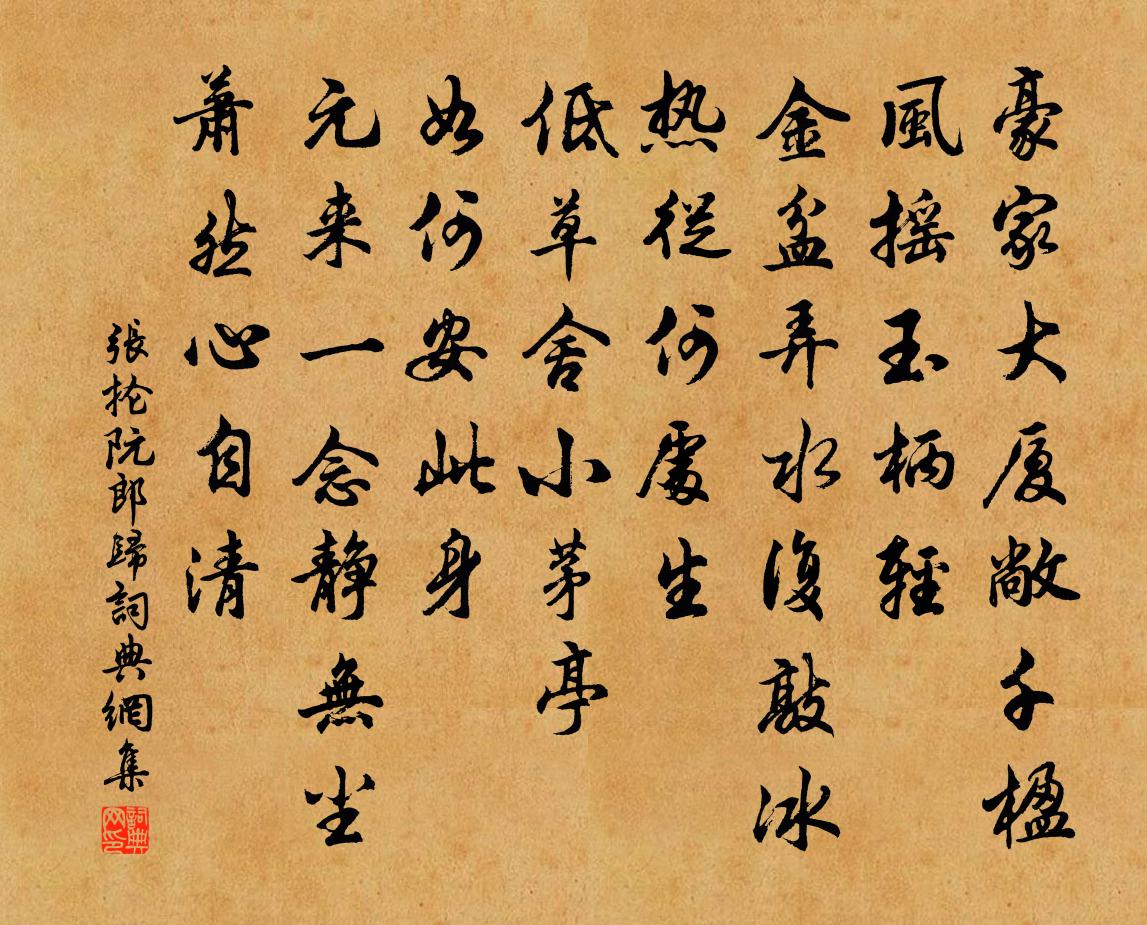 豪家大厦敞千楹
風摇玉柄輕
金盆弄水復敲冰
热從何處生
低草舍小茅亭
如何安此身
元来一念静無尘
蕭然心自清
張抡阮郎歸詞典網集
詞典网印